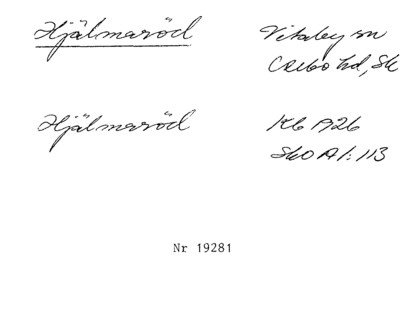 Hjälmaröd
Vitaby sn
Albo hd, Sk
Hjälmaröd
Kb 1926
SkO A 1:113
Nr 19281